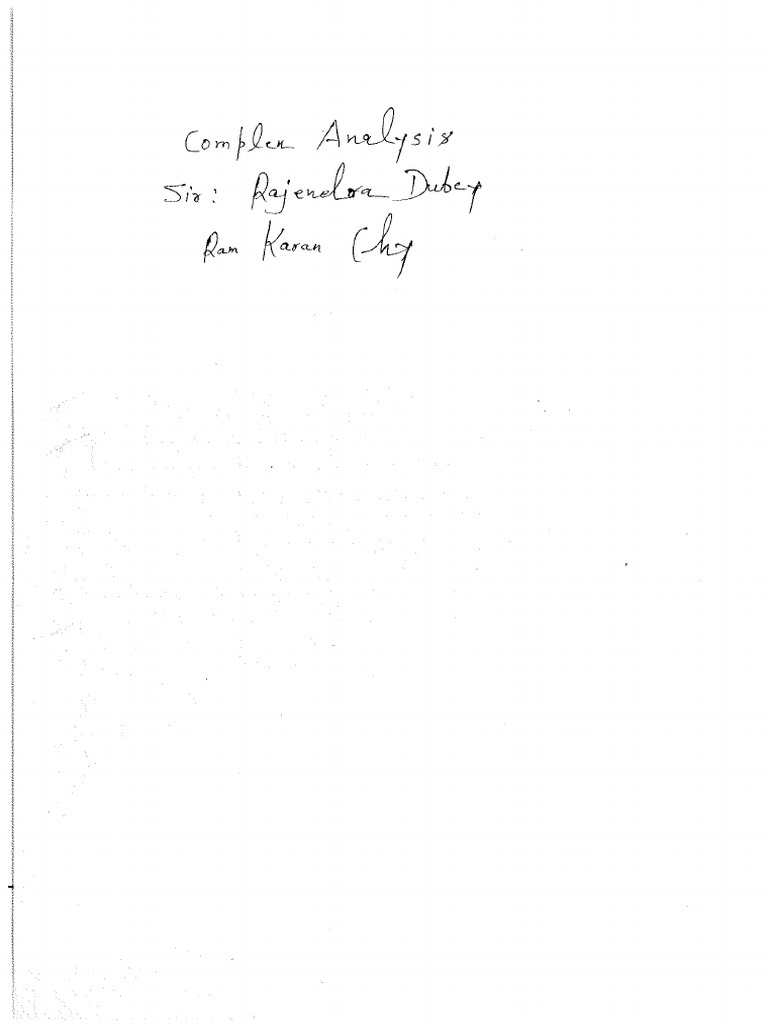 Complex Analysis
Sir: Rajendra Dubey
Ram Karan Chy